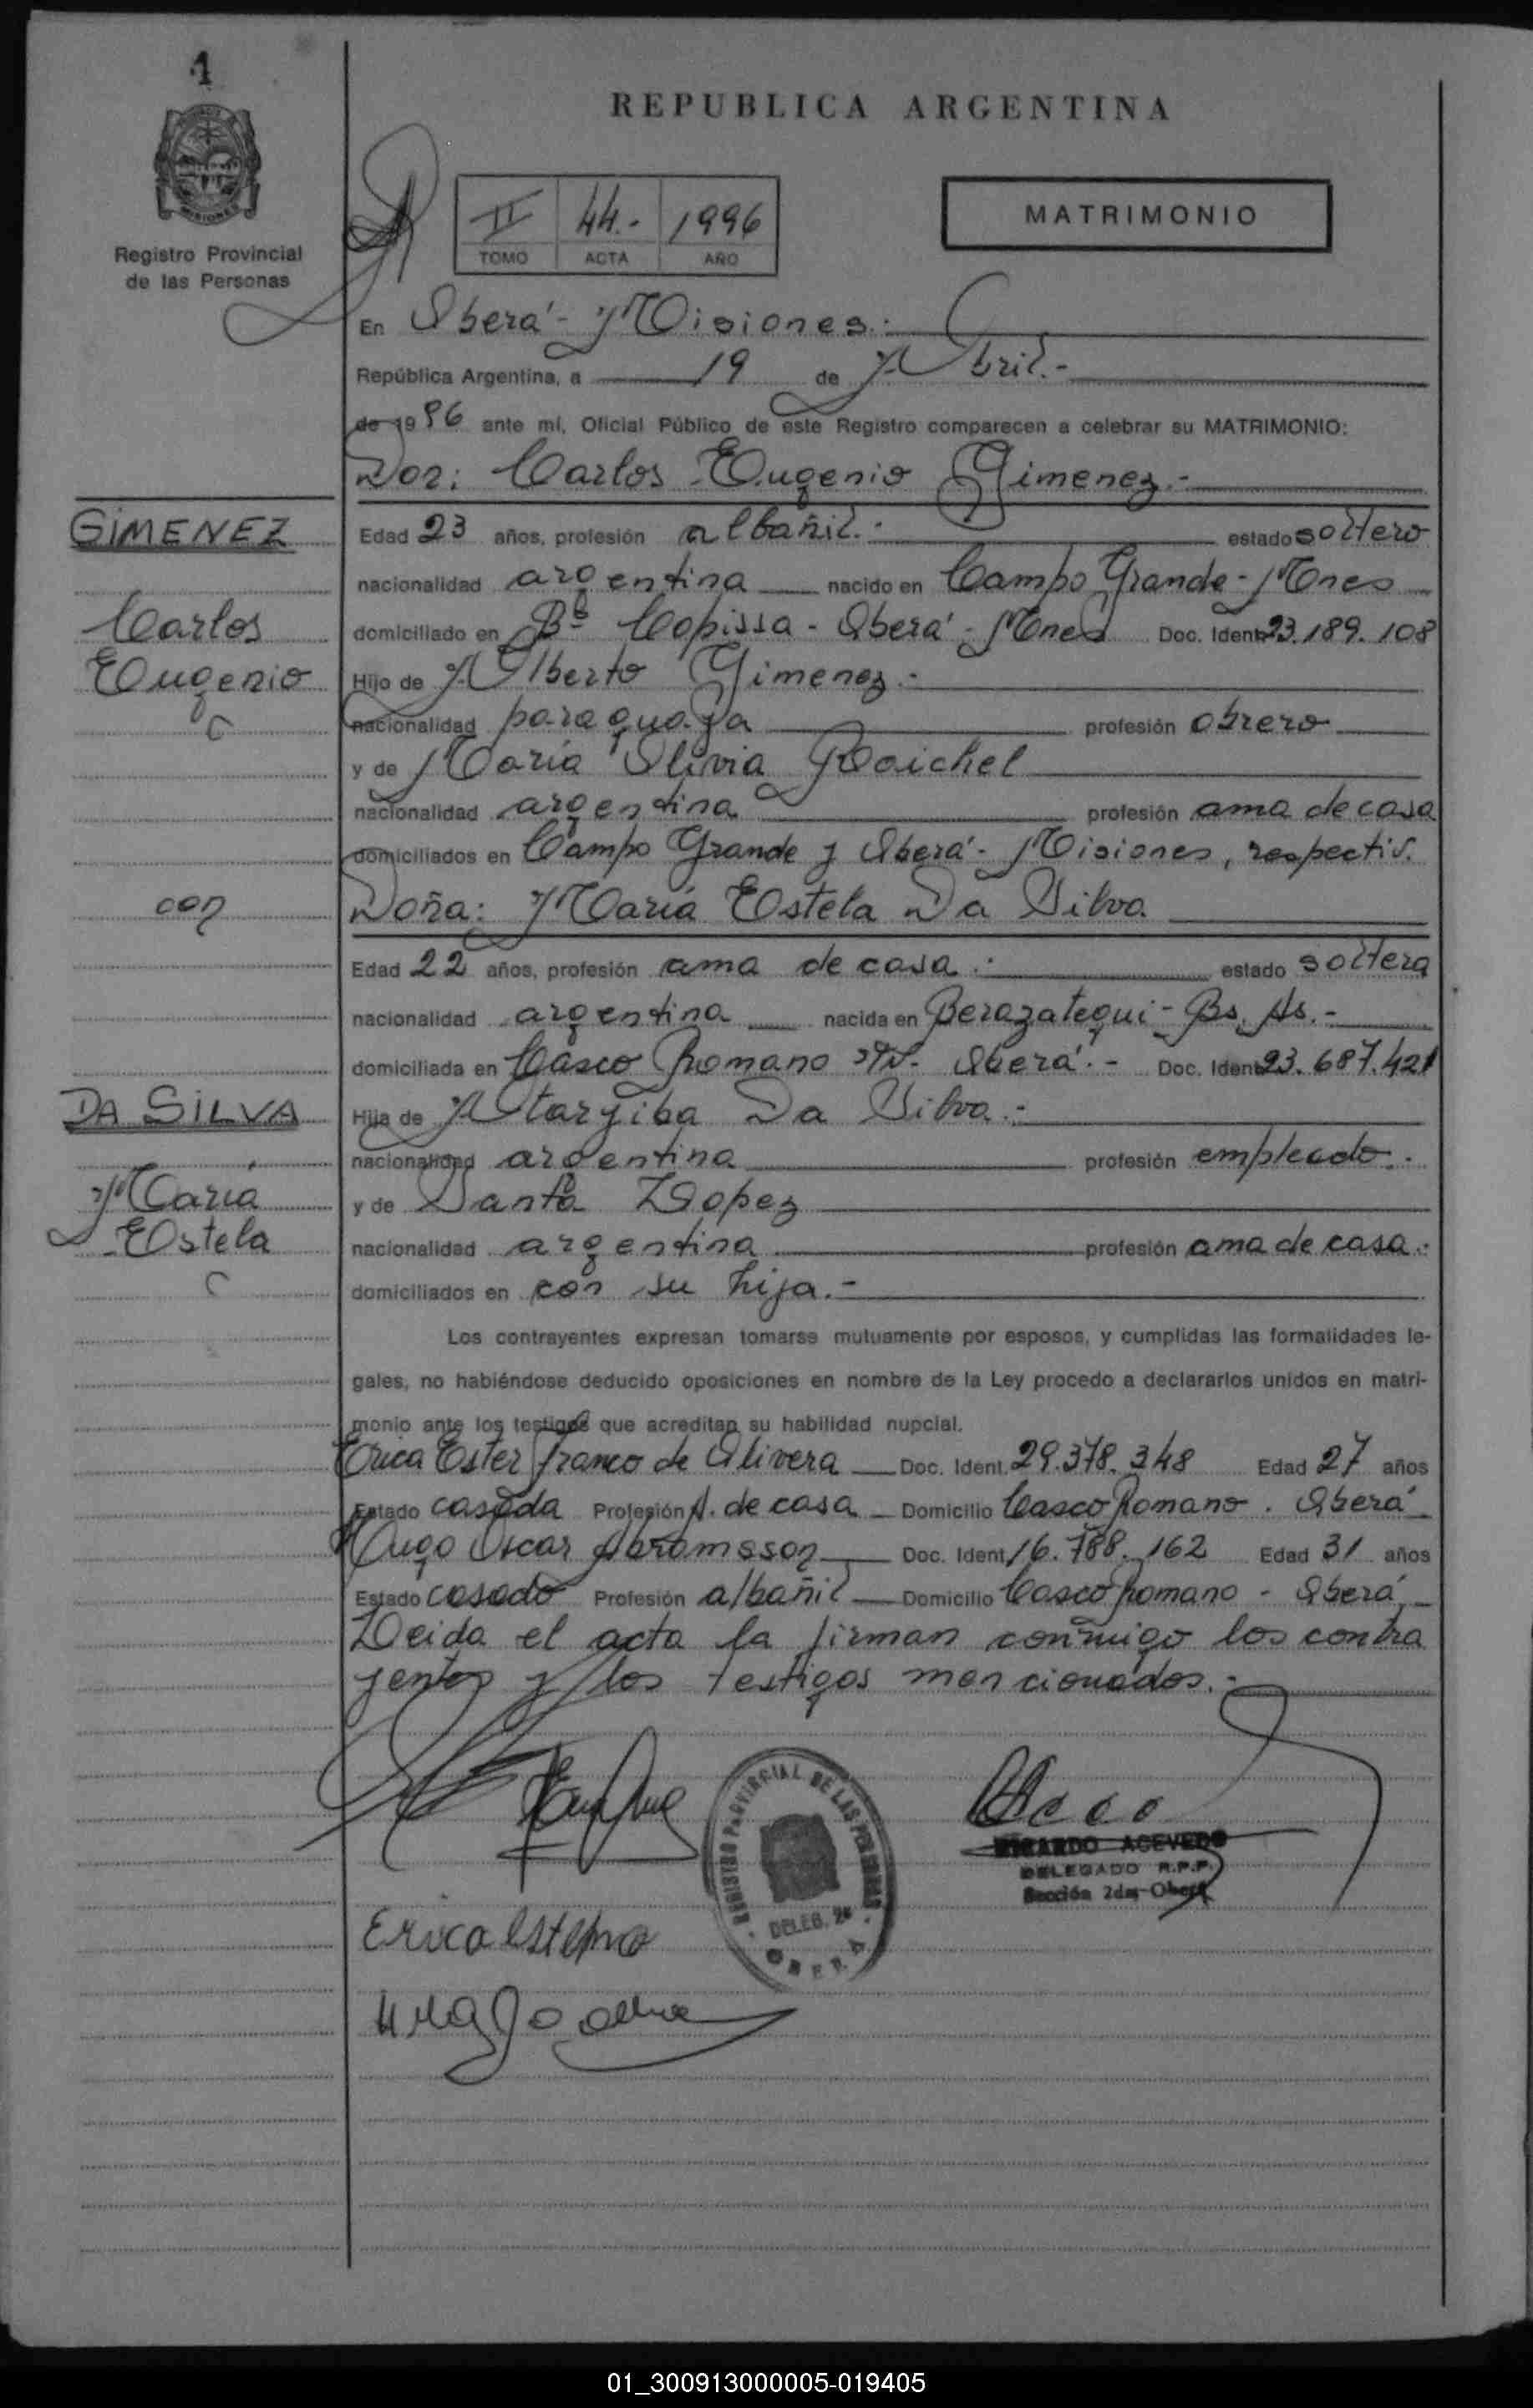 1
REPUBLICA ARGENTINA
Registro Provincial
de las Personas
II 44.- 1996
TOMO ACTA AÑO
MATRIMONIO
En Oberá - Misiones.-
República Argentina, a 19 de Abril.-
de 1996 ante mí, Oficial Público de este Registro comparecen a celebrar su MATRIMONIO:
Don: Carlos Eugenio Gimenez.-
GIMENEZ
Carlos
Eugenio
c
con
DA SILVA
María
Estela
c
Edad 23 años, profesión albañil.- estado soltero
nacionalidad argentina nacido en Campo Grande - Mnes
domiciliado en Bº Copissa - Oberá - Mnes Doc. Ident. 23.189.108
Hijo de Alberto Gimenez.-
nacionalidad paraguaya profesión obrero
y de María Olivia Raichel
nacionalidad argentina profesión ama de casa
domiciliados en Campo Grande y Oberá - Misiones, respectiv.
Doña: María Estela Da Silva
Edad 22 años, profesión ama de casa.- estado soltera
nacionalidad argentina nacida en Berazategui - Bs. As.-
domiciliada en Casco Romano Oberá.- Doc. Ident. 23.687.421
Hija de Ataryiba Da Silva.-
nacionalidad argentina profesión empleado.-
y de Santa Lopez
nacionalidad argentina profesión ama de casa.-
domiciliados en con su hija.-
Los contrayentes expresan tomarse mutuamente por esposos, y cumplidas las formalidades le-
gales, no habiéndose deducido oposiciones en nombre de la Ley procedo a declararlos unidos en matri-
monio ante los testigos que acreditan su habilidad nupcial.
Erica Ester Franco de Olivera Doc. Ident. 29.378.348 Edad 27 años
Estado casada Profesión A. de casa Domicilio Casco Romano . Oberá
Hugo Oscar Abramsson Doc. Ident. 16.788.162 Edad 31 años
Estado casado Profesión albañil Domicilio Casco Romano - Oberá
Leida el acta la firman conmigo los contra
yentes y los testigos mencionados.-
REGISTRO PROVINCIAL DE LAS PERSONAS
DELEG. 2ª
OBERA
RICARDO ACEVEDO
DELEGADO R.P.P.
Sección 2da-Oberá
01_300913000005-019405